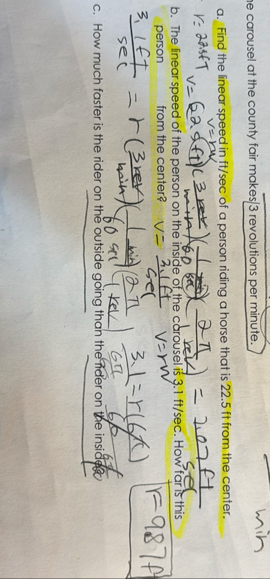 he carousel at the county fair makes 3 revolutions per minute.
min
a. Find the linear speed in ft/sec of a person riding a horse that is 22.5 ft from the center.
V=rw
r= 22.5ft V= (3 rev/min)(1 min/60 sec)(2π/1 rev) = 7.07 ft/sec
b. The linear speed of the person on the inside of the carousel is 3.1 ft/sec. How far is this
person from the center? V= 3.1 ft/sec V=rw
3.1 ft/sec = r (3 rev/min)(1 min/60 sec)(2π/1 rev) 3.1=r(6π/60) r=9.87 ft
c. How much faster is the rider on the outside going than the rider on the inside?